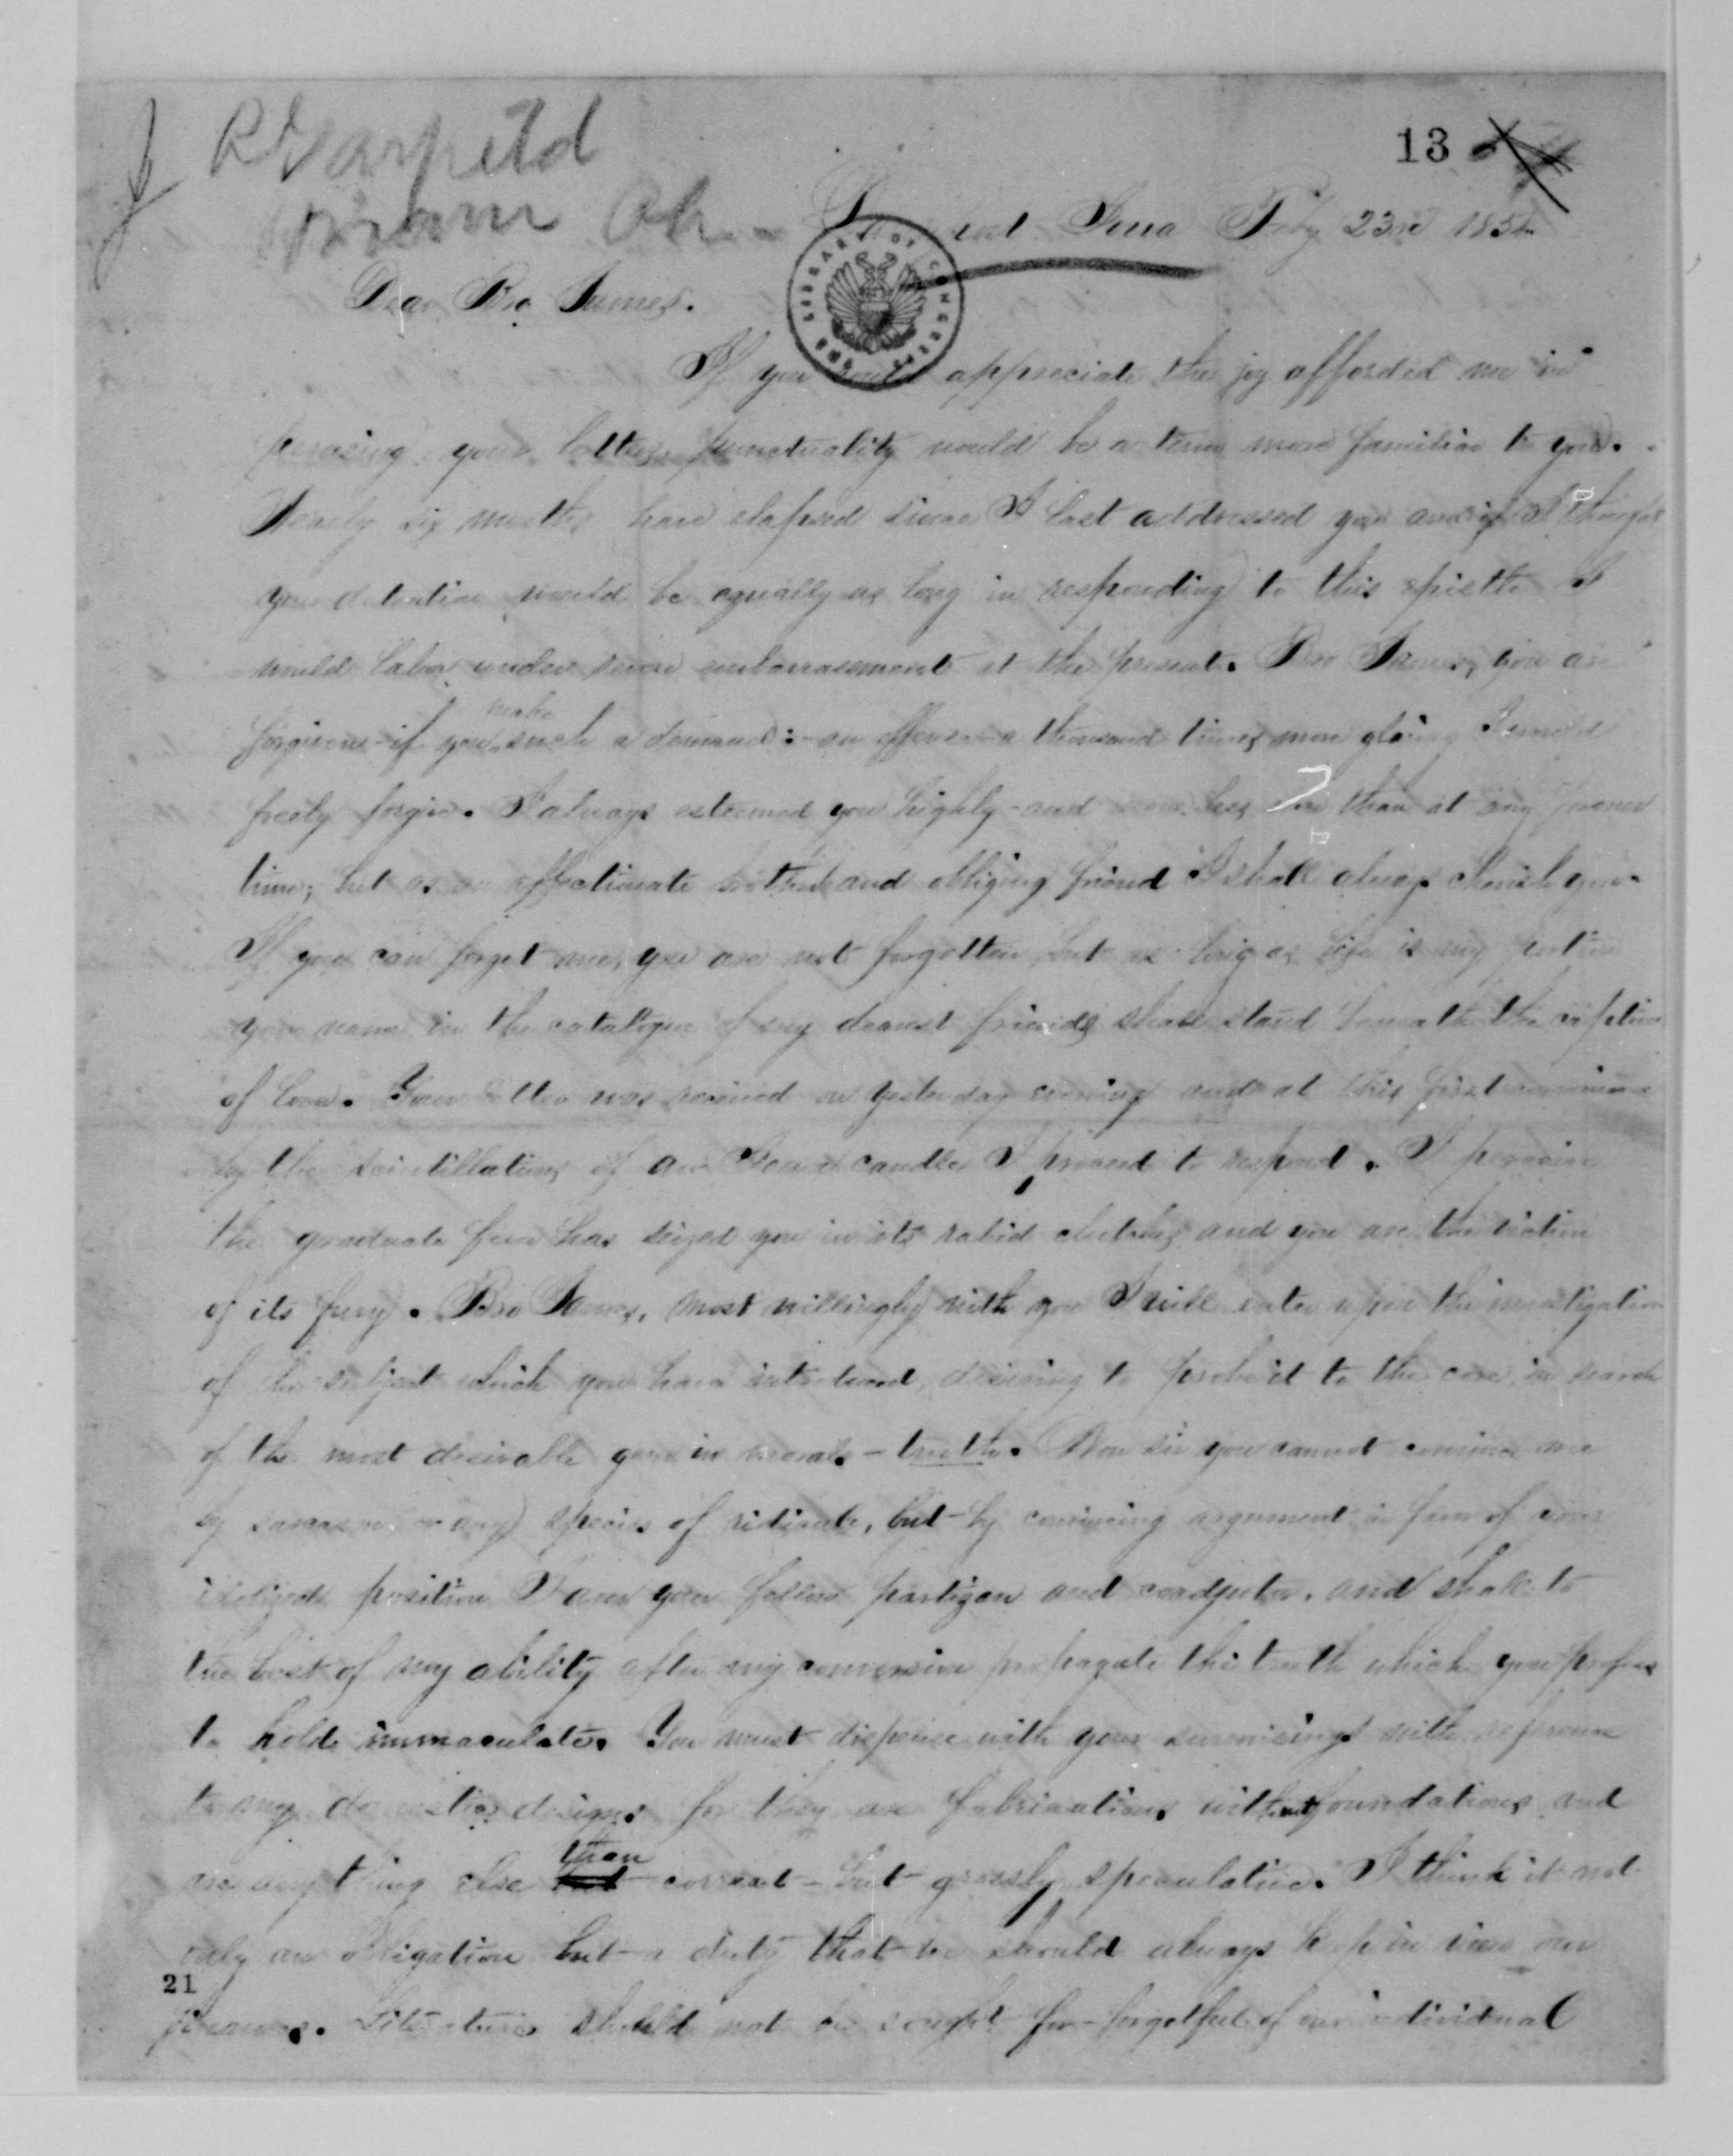 J R Garfield
Hiram Oh -
13
Feby 23rd 185
Dear Bro James.
If you could appreciate the joy afforded me in
perusing your letters, punctuality would be a term more familiar to you.
Nearly six months have elapsed since I last addressed you and if I thought
your detention would be equally as long in responding to this epistle I
would labor under severe embarrassment at the present. Bro James, you are
forgiven if you make such a demand: - an offense a thousand times more glaring I would
freely forgive. I always esteemed you highly - and less now than at any former
time; but as an affectionate brother and obliging friend I shall always cherish you.
If you can forget me, you are not forgotten, but as long as life is my portion
your name in the catalogue of my dearest friends shall stand beneath the caption
of love. Your letter was received on yesterday evening and at this first
by the scintillations of an candle I proceed to respond. I perceive
the graduate fever has seized you in its rabid clutches and you are the victim
of its fury. Bro James, most willingly with you I will enter upon the investigation
of the subject which you have introduced, desiring to probe it to the core, in search
of the most desirable gem in morals - truth. Now sir you cannot convince me
by sarcasm or any species of ridicule, but by convincing argument in favor of your
position I am your fellow partizan and coadjutor, and shall to
the best of my ability after my conversion propagate the truth which you profess
to hold immaculate. You must dispense with your surmisings with reference
to my domestic designs for they are fabrications without foundations and
are any thing else than correct - but grossly speculative. I think it not
only an obligation but a duty that we should always keep in view our
21
finances. Literature should not be sought for - forgetful of our individual